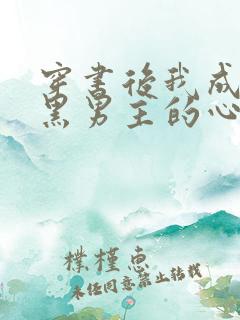 穿书后我成
黑男主的心
朴槿惠
未经同意禁止转载